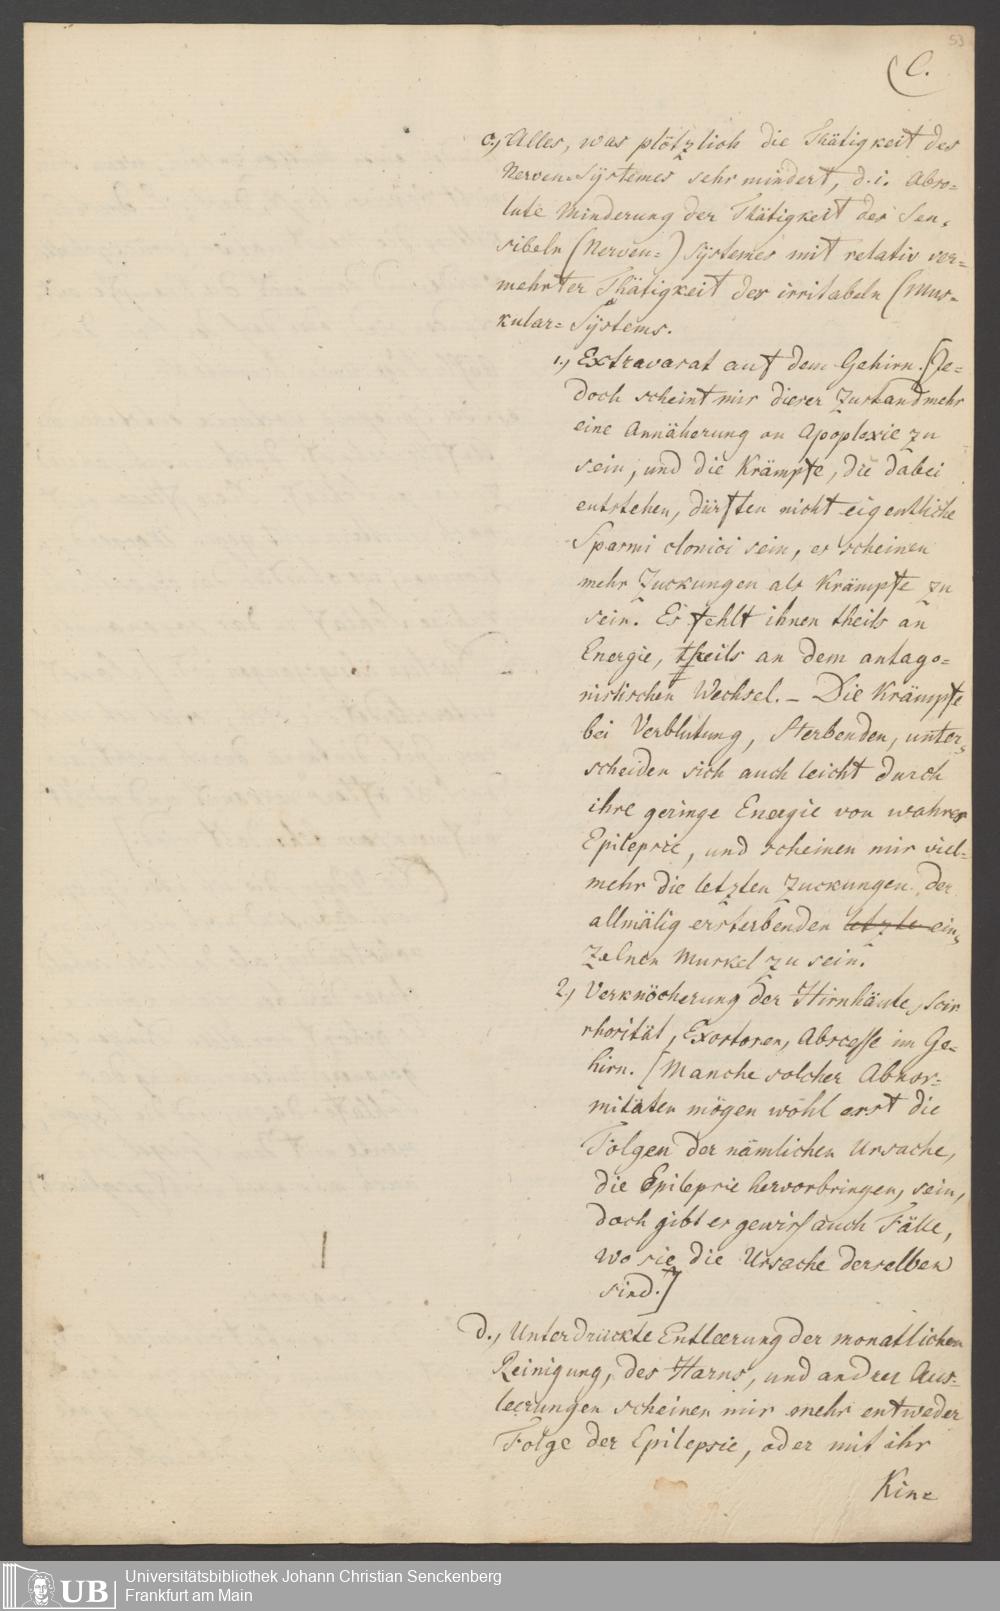 53
C.
c., Alles, was plötzlich die Thätigkeit des
Nerven-Systemes sehr mindert, d. i. Abso-
lute Minderung der Thätigkeit des Sen-
sibeln (Nerven=) Systemes mit relativ ver-
mehrter Thätigkeit des irritabeln (Mus-
kular= Systems.
1., Extravasat auf dem Gehirn. (Je-
doch scheint mir dieser Zustand mehr
eine Annäherung an Apoplexie zu
sein, und die Krämpfe, die dabei
entstehen, dürften nicht eigentliche
Spasmi clonici sein, es scheinen
mehr Zuckungen als Krämpfe zu
sein. Es fehlt ihnen theils an
Energie, theils an dem antago-
nistischen Wechsel. – Die Krämpfe
bei Verblutung, Sterbenden, unter-
scheiden sich auch leicht durch
ihre geringe Energie von wahrer
Epilepsie, und scheinen mir viel-
mehr die letzten Zuckungen der
allmälig ersterbenden letzte ein-
zelnen Muskel zu sein.
2., Verknöcherung der Hirnhäute, Scir
rhosität, Exostosen, Abscesse im Ge-
hirn. (Manche solcher Abnor-
mitäten mögen wohl erst die
Folgen der nämlichen Ursache,
die Epilepsie hervorbringen, sein,
doch gibt es gewiß auch Fälle,
wo sie die Ursache derselben
sind.)
d., Unterdrückte Entleerung der monatlichen
Reinigung, des Harns, und andrer Aus-
leerungen scheinen mir mehr entweder
Folge der Epilepsie, oder mit ihr
Kin-
UB
Universitätsbibliothek Johann Christian Senckenberg
Frankfurt am Main